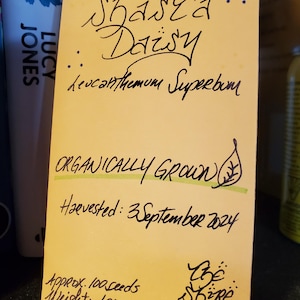 Shasta
Daisy
Leucanthemum Superbum
ORGANICALLY GROWN
Harvested: 3 September 2024
Approx. 100 seeds
Weight:
The
LUCY
JONES